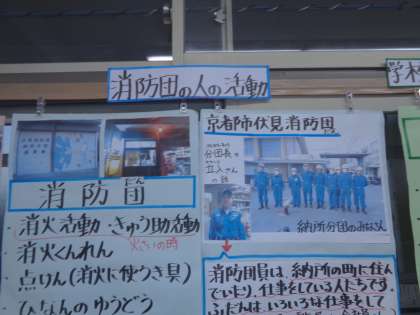 消防団の人の活動
学校
消防団
だん
・消火活動・きゅう助活動
火さいの時
・消火くんれん
・点けん(消火に使うき具)
・ひなんのゆうどう
京都市伏見消防団
分団長の
立入さん
の話
納所分団のみなさん
消防団員は、納所の町に住ん
でいたり、仕事をしている人たちです。
ふだんは、いろいろな仕事をして